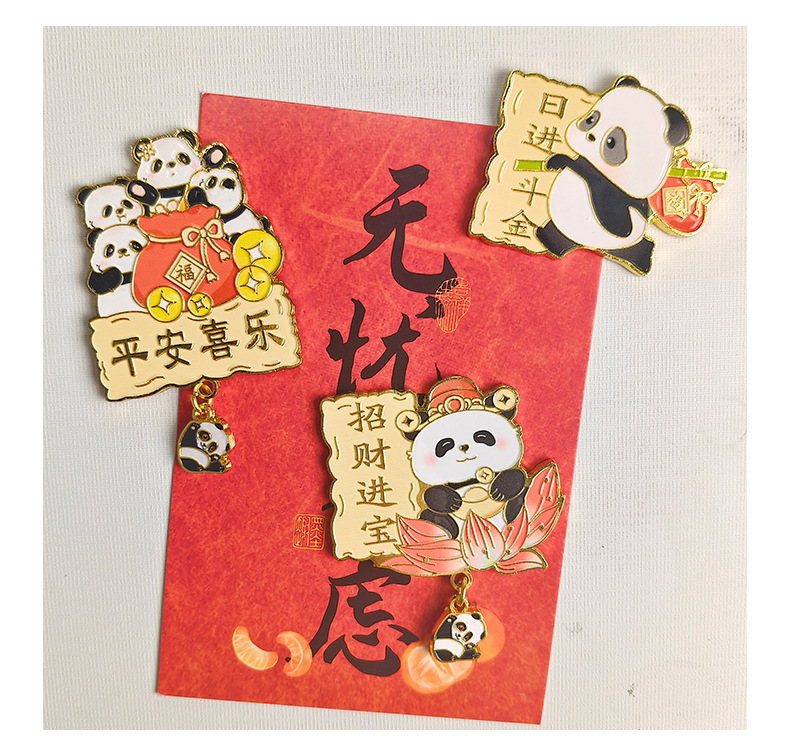 日进斗金
无忧
虑
福
平安喜乐
招财进宝